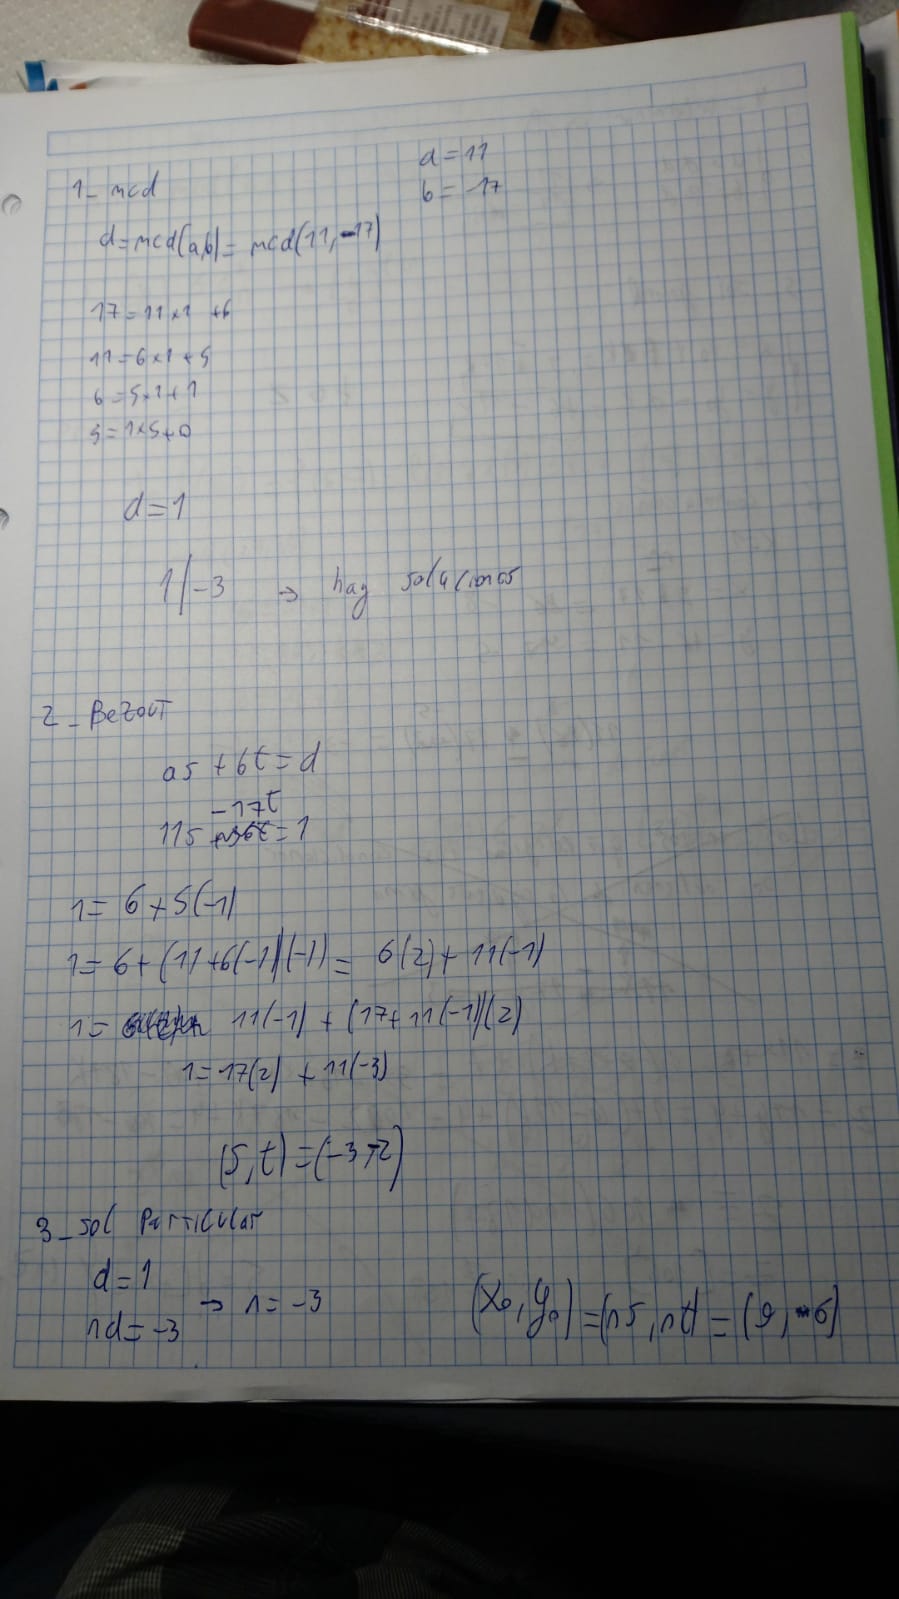 a = 11
b = -17
1- mcd
d = mcd(a,b) = mcd(11,-17)
17 = 11x1 +6
11 = 6x1 + 5
6 = 5x1 + 1
5 = 1x5+0
d = 1
1/-3 → hay soluciones
2- Bezout
as + bt = d
-17t
11s = 1
1 = 6 + 5(-1)
1 = 6 + (11 + 6(-1))(-1) = 6(2) + 11(-1)
1 = 11(-1) + (17 + 11(-1))(2)
1 = 17(2) + 11(-3)
(s,t) = (-3,-2)
3- sol particular
d = 1
nd = -3 → n = -3
(x₀, y₀) = (ns, nt) = (9, 6)